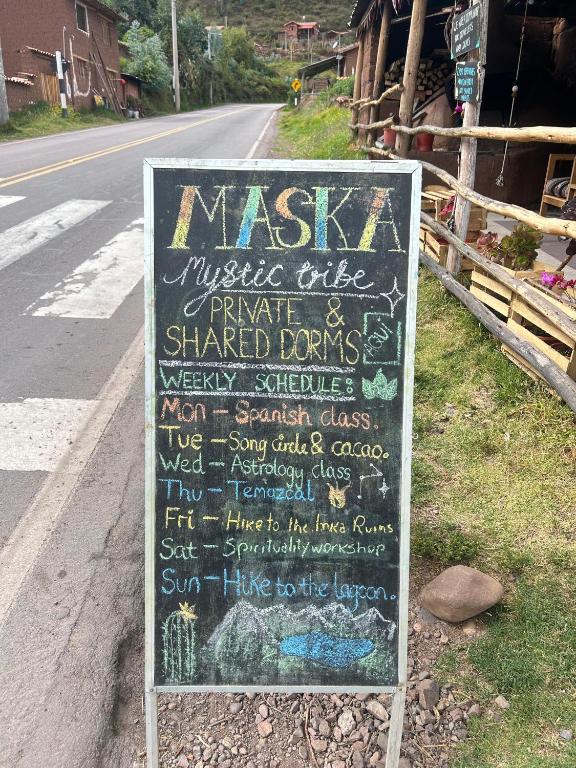 MASKA
Mystic tribe
PRIVATE &
SHARED DORMS
WEEKLY SCHEDULE:
Mon - Spanish class.
Tue - Song circle & cacao.
Wed - Astrology class
Thu - Temazcal
Fri - Hike to the Inka Ruins
Sat - Spirituality workshop
Sun - Hike to the lagoon.